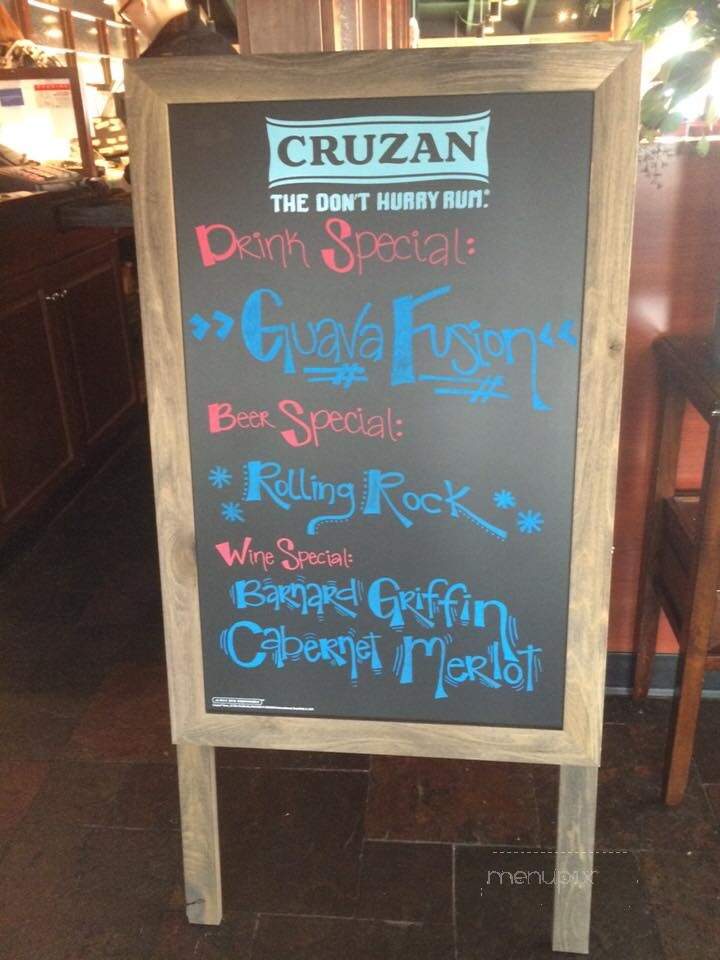 CRUZAN
THE DON'T HURRY RUM.
Drink Special:
>> Guava Fusion <<
Beer Special:
* Rolling Rock *
Wine Special:
Barnard Griffin
Cabernet Merlot
menupix